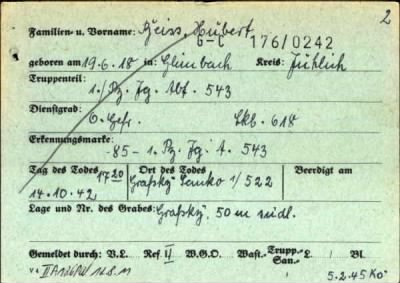 2
Familien- u. Vorname: Hubert
G-C 176/0242
geboren am 19.6.18 in: Glimbach Kreis: Jühlich
Truppenteil: 1./Pz. Jg. Abt. 543
Dienstgrad: O. Gefr. Lkb. 618
Erkennungsmarke: -85- 1. Pz. Jg. A. 543
Tag des Todes 17 20 Ort des Todes Beerdigt am
14.10.42 Grafsky 1/522
Lage und Nr. des Grabes: Grafsky 50 m südl.
Gemeldet durch: V.L. Ref II W.G.O. Wast.- Trupp.- San.- L. Bl.
5.2.45 Ko